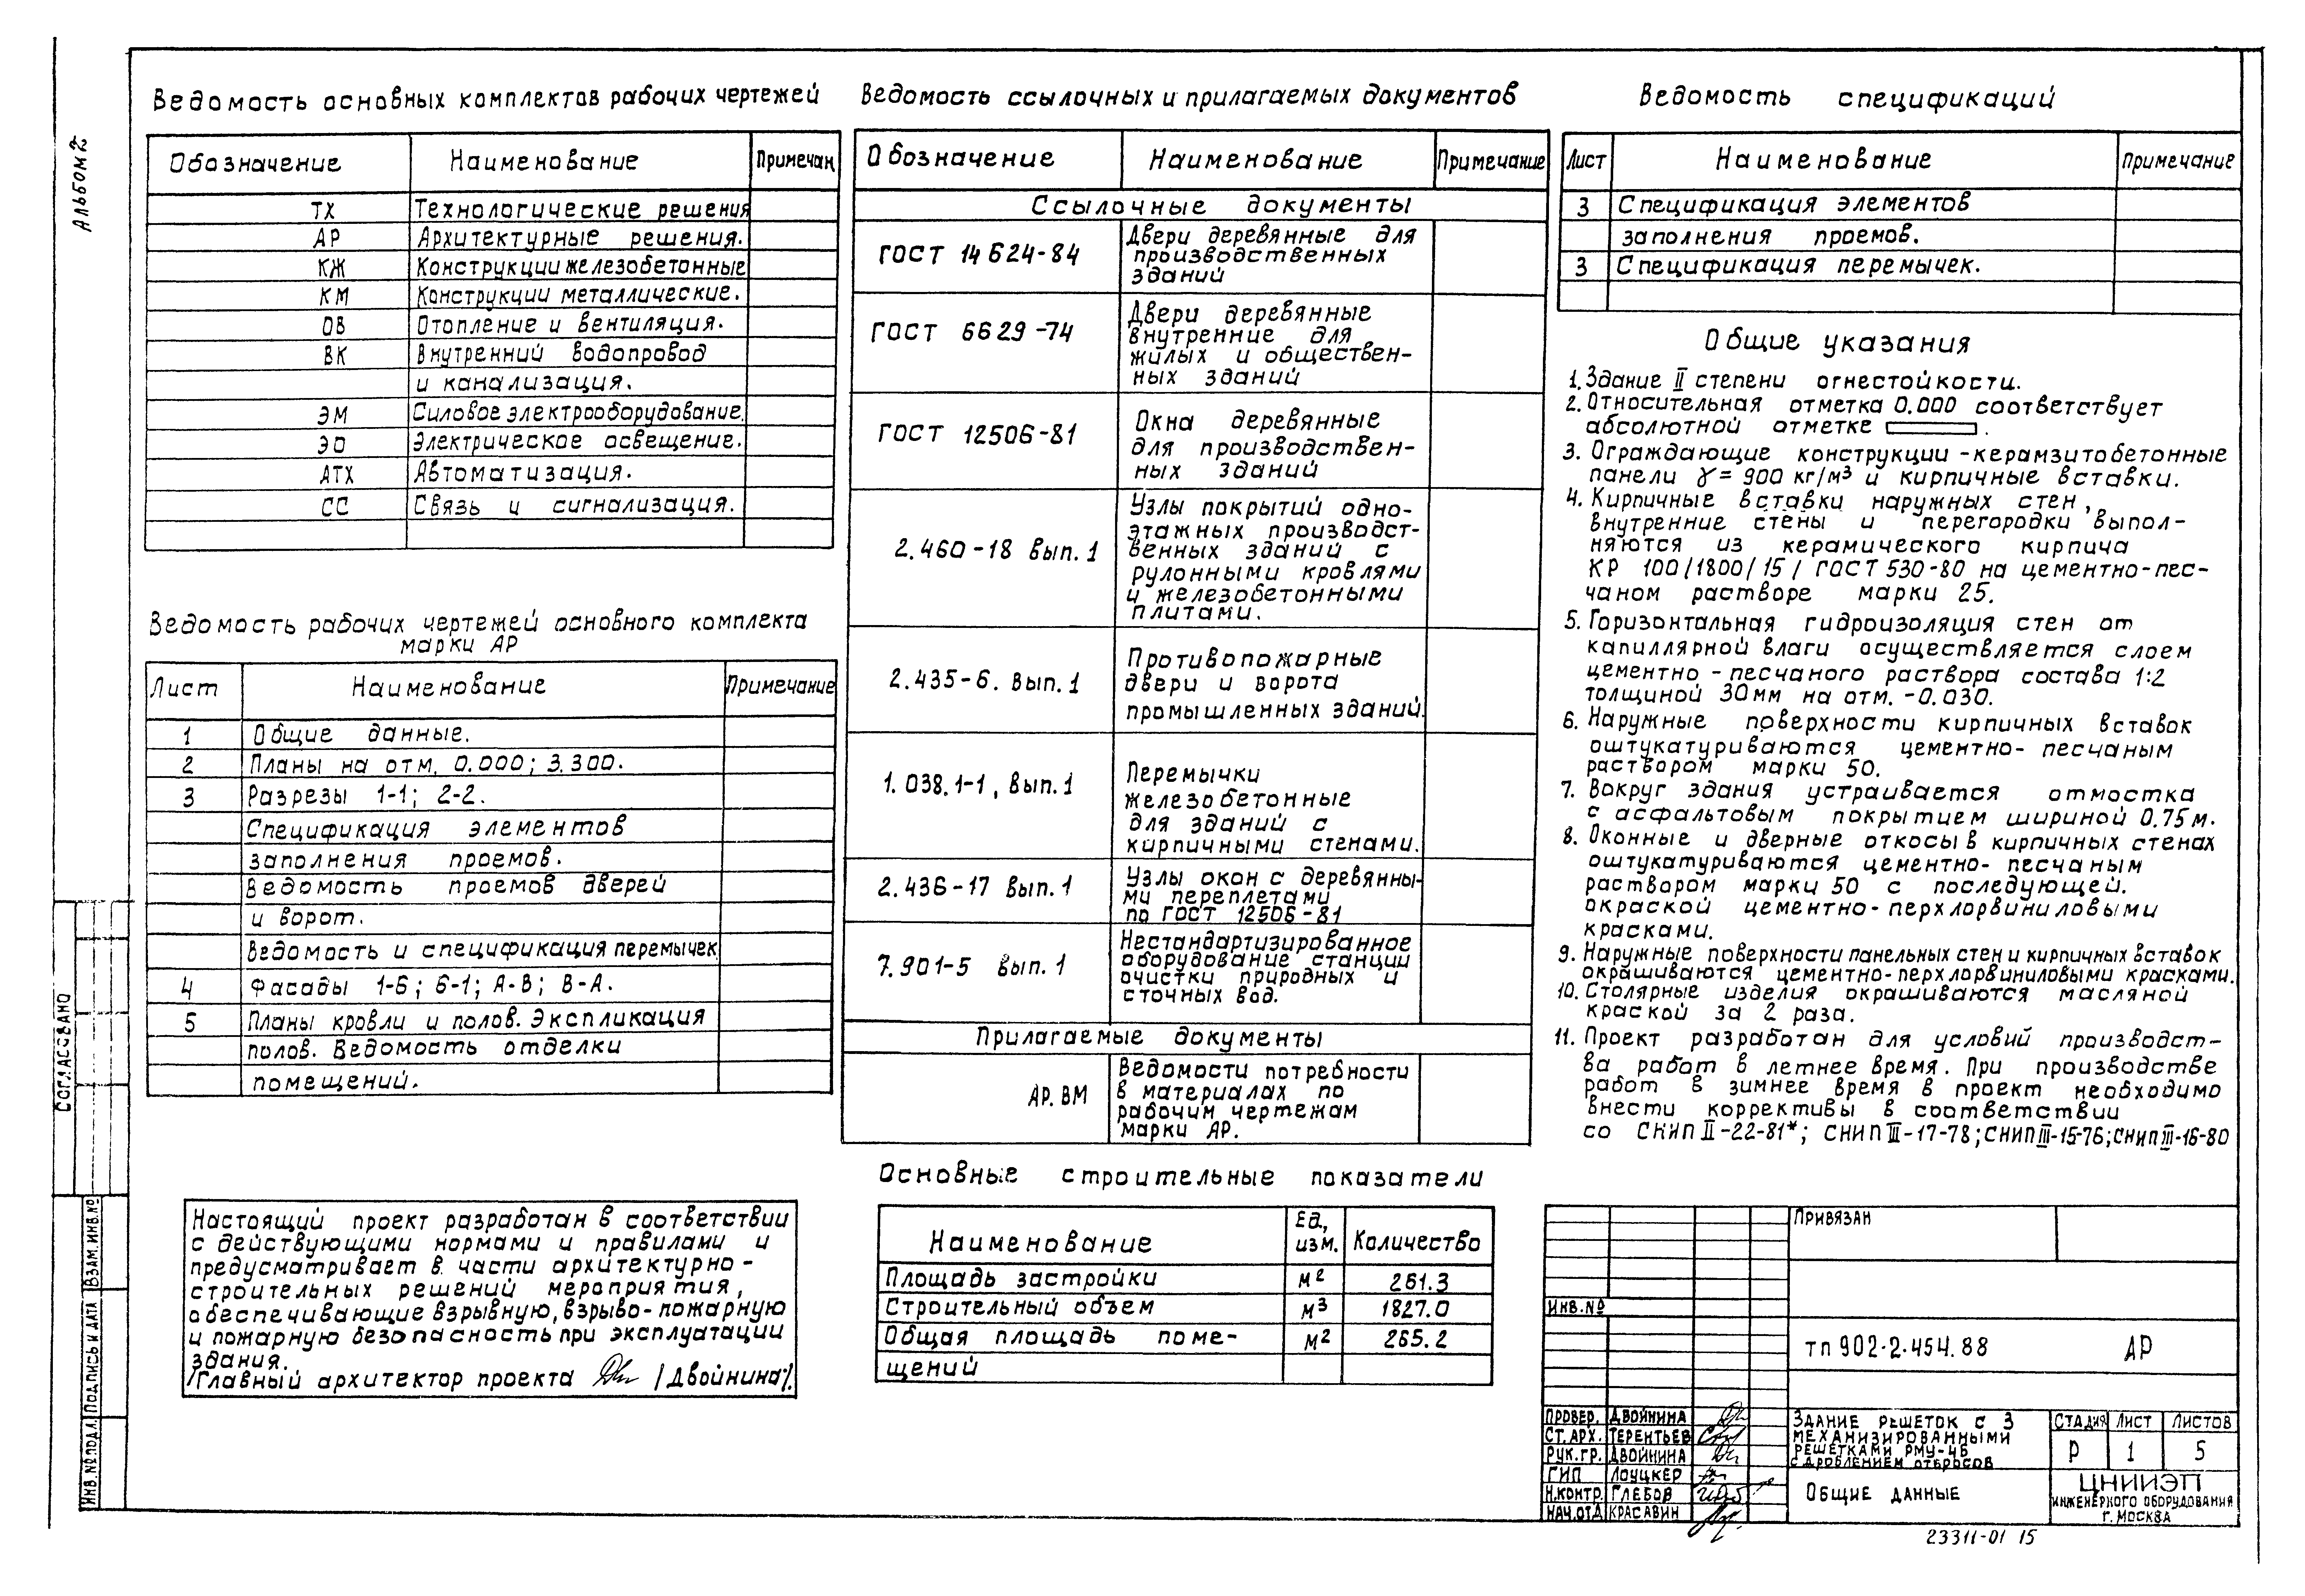 Альбом 2
Ведомость основных комплектов рабочих чертежей
Обозначение Наименование Примечан.
ТХ Технологические решения
АР Архитектурные решения.
КЖ Конструкции железобетонные
КМ Конструкции металлические.
ОВ Отопление и вентиляция.
ВК Внутренний водопровод
и канализация.
ЭМ Силовое электрооборудование.
ЭО Электрическое освещение.
АТХ Автоматизация.
СС Связь и сигнализация.
Ведомость рабочих чертежей основного комплекта
марки АР
Лист Наименование Примечание
1 Общие данные.
2 Планы на отм. 0.000; 3.300.
3 Разрезы 1-1; 2-2.
Спецификация элементов
заполнения проемов.
Ведомость проемов дверей
и ворот.
Ведомость и спецификация перемычек
4 Фасады 1-6; 6-1; А-В; В-А.
5 Планы кровли и полов. Экспликация
полов. Ведомость отделки
помещений.
Настоящий проект разработан в соответствии
с действующими нормами и правилами и
предусматривает в части архитектурно-
строительных решений мероприятия,
обеспечивающие взрывную, взрыво-пожарную
и пожарную безопасность при эксплуатации
здания.
Главный архитектор проекта /Двойнина/.
Ведомость ссылочных и прилагаемых документов
Обозначение Наименование Примечание
Ссылочные документы
ГОСТ 14624-84 Двери деревянные для
производственных
зданий
ГОСТ 6629-74 Двери деревянные
внутренние для
жилых и обществен-
ных зданий
ГОСТ 12506-81 Окна деревянные
для производствен-
ных зданий
2.460-18 Вып.1 Узлы покрытий одно-
этажных производст-
венных зданий с
рулонными кровлями
и железобетонными
плитами.
2.435-6. Вып.1 Противопожарные
двери и ворота
промышленных зданий.
1.038.1-1, Вып.1 Перемычки
железобетонные
для зданий с
кирпичными стенами.
2.436-17 Вып.1 Узлы окон с деревянны-
ми переплетами
по ГОСТ 12506-81
7.901-5 Вып.1 Нестандартизированное
оборудование станции
очистки природных и
сточных вод.
Прилагаемые документы
АР.ВМ Ведомости потребности
в материалах по
рабочим чертежам
марки АР.
Основные строительные показатели
Наименование Ед. изм. Количество
Площадь застройки м² 261.3
Строительный объем м³ 1827.0
Общая площадь поме- м² 265.2
щений
Ведомость спецификаций
Лист Наименование Примечание
3 Спецификация элементов
заполнения проемов.
3 Спецификация перемычек.
Общие указания
1. Здание II степени огнестойкости.
2. Относительная отметка 0.000 соответствует
абсолютной отметке .
3. Ограждающие конструкции - керамзитобетонные
панели γ = 900 кг/м³ и кирпичные вставки.
4. Кирпичные вставки наружных стен,
внутренние стены и перегородки выпол-
няются из керамического кирпича
КР 100/1800/15/ ГОСТ 530-80 на цементно-пес-
чаном растворе марки 25.
5. Горизонтальная гидроизоляция стен от
капиллярной влаги осуществляется слоем
цементно-песчаного раствора состава 1:2
толщиной 30мм на отм. -0.030.
6. Наружные поверхности кирпичных вставок
оштукатуриваются цементно-песчаным
раствором марки 50.
7. Вокруг здания устраивается отмостка
с асфальтовым покрытием шириной 0.75м.
8. Оконные и дверные откосы в кирпичных стенах
оштукатуриваются цементно-песчаным
раствором марки 50 с последующей.
окраской цементно-перхлорвиниловыми
красками.
9. Наружные поверхности панельных стен и кирпичных вставок
окрашиваются цементно-перхлорвиниловыми красками.
10. Столярные изделия окрашиваются масляной
краской за 2 раза.
11. Проект разработан для условий производст-
ва работ в летнее время. При производстве
работ в зимнее время в проект необходимо
внести коррективы в соответствии
со СНИП II-22-81*; СНИП III-17-78; СНИП III-15-76; СНИП III-16-80
Привязан
Инв.№
ТП 902-2-454.88 АР
Провер. Двойнина
Ст.арх. Терентьев
Рук.гр. Двойнина
ГИП Лоуцкер
Н.контр. Глебов
Нач.отд Красавин
Здание решеток с 3
механизированными
решетками РМУ-4Б
с дроблением отбросов
Стадия Лист Листов
Р 1 5
Общие данные
ЦНИИЭП
инженерного оборудования
г. Москва
23311-01 15
Согласовано
Взам. инв.№
Подпись и дата
Инв.№ подл.